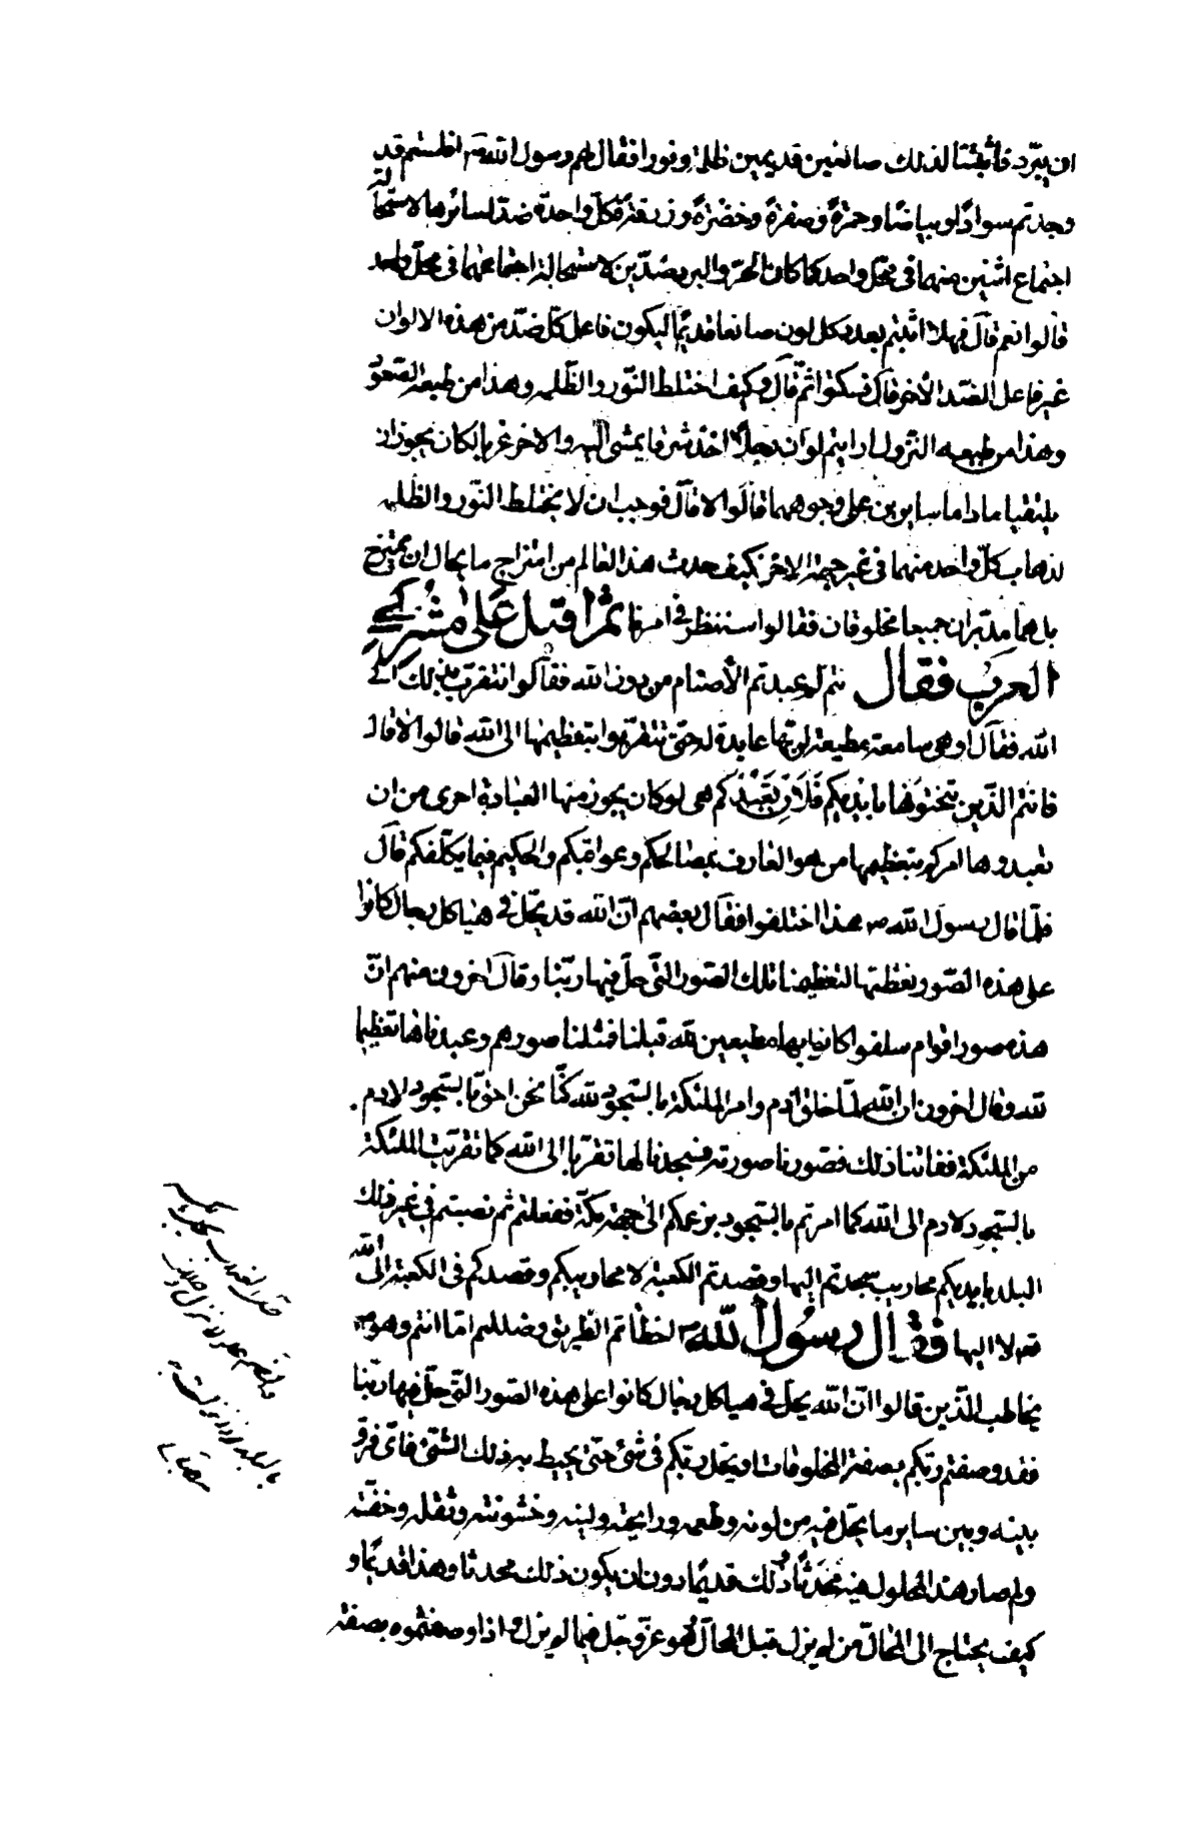 ان يبرد فأثبتنا لذلك صانعين قديمين ظلمة ونورا فقال لهم رسول الله ص افلستم قد
وجدتم سوادا وبياضا وحمرة وصفرة وخضرة وزرقة وكل واحدة ضد لسائرها لاستحالة
اجتماع اثنين منهما في محل واحد كما كان الحر والبرد ضدين لاستحالة اجتماعهما في محل واحد
قالوا نعم قال فهلا اثبتم بعدد كل لون صانعا قديما ليكون فاعل كل ضد من هذه الالوان
غير فاعل الضد الآخر قال فسكتوا ثم قال وكيف اختلط النور والظلمه وهذا من طبعه الصعود
وهذا من طبعه النزول ارايتم لو ان رجلا اخذ شرقا يمشي اليه والاخر غربا اكان يجوز ان
يلتقيا ما داما سايرين على وجوههما قالوا لا قال فوجب ان لا يختلط النور والظلمه
لذهاب كل واحد منهما في غير جهة الاخر فكيف حدث هذا العالم من امتزاج ما يحال ان يمتزج
بل هما مدبران جميعا مخلوقان فقالوا سننظر في امرنا ثم اقبل على مشركي
العرب فقال انتم لم عبدتم الأصنام من دون الله فقالوا نتقرب بذلك الى
الله فقال او هي سامعة مطيعة لربها عابدة له حتى تتقربوا بتعظيمها الى الله قالوا لا قال
فانتم الذين نحتموها بايديكم فلان تعبدكم هي لو كان يجوز منها العبادة احرى من ان
تعبدوها امركم بتعظيمها من هو العارف بمصالحكم وعواقبكم والحكيم فيما يكلفكم قال
فلما قال رسول الله ص هذا اختلفوا فقال بعضهم ان الله قد يحل في هياكل رجال كانوا
على هذه الصور نعظمها لتعظيمنا تلك الصور التي حل فيها ربنا وقال اخرون منهم ان
هذه صور اقوام سلفوا كانوا بها مطيعين لله قبلنا فمثلنا صورهم وعبدناها تعظيما
لله وقال اخرون ان الله لما خلق ادم وامر الملئكة بالسجود لله كنا نحن احق بالسجود لادم
من الملئكة ففاتنا ذلك فصورنا صورته فسجدنا لها تقربا الى الله كما تقربت الملئكة
بالسجود لادم الى الله كما امرتم بالسجود بزعمكم الى جهة مكة ففعلتم ثم نصبتم في غير ذلك
البلد بايديكم محاريب سجدتم اليها وقصدتم الكعبة لا محاريبكم وقصدكم في الكعبة الى الله
لا اليها فقال رسول الله ص اخطأتم الطريق وضللتم اما انتم وهو ص
يخاطب الذين قالوا ان الله يحل في هياكل رجال كانوا على هذه الصور التي حل فيها ربنا
فقد وصفتم ربكم بصفة المخلوقات او يحل ربكم في شئ حتى يحيط به ذلك الشئ فاى فرق
بينه وبين ساير ما يحل فيه من لونه وطعمه ورايحته ولينه وخشونته وثقله وخفته
ولم صار هذا المحلول فيه محدثا وذلك قديما دون ان يكون ذلك محدثا وهذا قديما و
كيف يحتاج الى المحال من لم يزل قبل المحال وهو عز وجل فيما لم يزل واذا وصفتموه بصفة